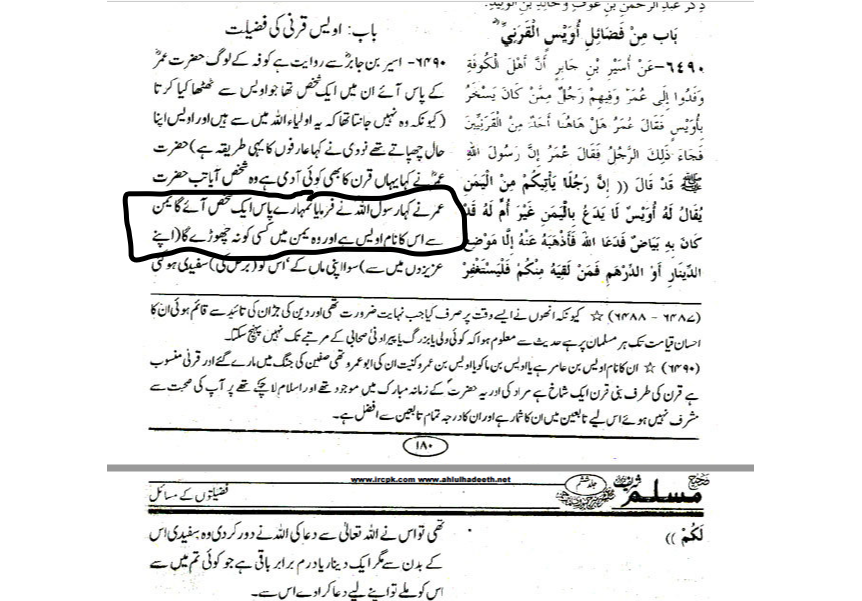 ذکر عبد الرحمن بن عوف وخالد بن الولید۔
بَاب مِنْ فَضَائِلِ أُوَيْسٍ الْقَرَنِيِّ
٦٤٩٠-عَنْ أُسَيْرِ بْنِ جَابِرٍ أَنَّ أَهْلَ الْكُوفَةِ
وَفَدُوا إِلَى عُمَرَ وَفِيهِمْ رَجُلٌ مِمَّنْ كَانَ يَسْخَرُ
بِأُوَيْسٍ فَقَالَ عُمَرُ هَلْ هَاهُنَا أَحَدٌ مِنْ الْقَرَنِيِّينَ
فَجَاءَ ذَلِكَ الرَّجُلُ فَقَالَ عُمَرُ إِنَّ رَسُولَ اللهِ
ﷺ قَدْ قَالَ (( إِنَّ رَجُلًا يَأْتِيكُمْ مِنْ الْيَمَنِ
يُقَالُ لَهُ أُوَيْسٌ لَا يَدَعُ بِالْيَمَنِ غَيْرَ أُمٍّ لَهُ قَدْ
كَانَ بِهِ بَيَاضٌ فَدَعَا اللهَ فَأَذْهَبَهُ عَنْهُ إِلَّا مَوْضِعَ
الدِّينَارِ أَوْ الدِّرْهَمِ فَمَنْ لَقِيَهُ مِنْكُمْ فَلْيَسْتَغْفِرْ
باب: اویس قرنی کی فضیلت
۶۴۹۰- اسیر بن جابرؓ سے روایت ہے کوفہ کے لوگ حضرت عمرؓ
کے پاس آئے ان میں ایک شخص تھا جو اویس سے ٹھٹھا کیا کرتا
(کیونکہ وہ نہیں جانتا تھا کہ یہ اولیاء اللہ میں سے ہیں اور اویس اپنا
حال چھپاتے تھے نووی نے کہا عارفوں کا یہی طریقہ ہے) حضرت
عمرؓ نے کہا یہاں قرن کا بھی کوئی آدمی ہے وہ شخص آیا تب حضرت
عمر نے کہا رسول اللہ نے فرمایا تمہارے پاس ایک شخص آئے گا یمن
سے اس کا نام اویس ہے اور وہ یمن میں کسی کو نہ چھوڑے گا (اپنے
عزیزوں میں سے) سوا اپنی ماں کے' اس کو (برص کی) سفیدی ہو گئی
(۶۴۸۷ - ۶۴۸۸) ☆ کیونکہ انھوں نے ایسے وقت پر صرف کیا جب نہایت ضرورت تھی اور دین کی جڑ ان کی تائید سے قائم ہوئی ان کا
احسان قیامت تک ہر مسلمان پر ہے حدیث سے معلوم ہوا کہ کوئی ولی یا بزرگ یا پیر ادنیٰ صحابی کے مرتبے تک نہیں پہنچ سکتا۔
(۶۴۹۰) ☆ ان کا نام اویس بن عامر ہے یا اویس بن ماکو یا اویس بن عمرو کنیت ان کی ابو عمرو تھی صفین کی جنگ میں مارے گئے اور قرنی منسوب
ہے قرن کی طرف بنی قرن ایک شاخ ہے مراد کی اور یہ حضرتؐ کے زمانہ مبارک میں موجود تھے اور اسلام لا چکے تھے پر آپ کی صحبت سے
مشرف نہیں ہوئے اس لیے تابعین میں ان کا شمار ہے اور ان کا درجہ تمام تابعین سے افضل ہے۔
۱۸۰
www.ircpk.com www.ahlulhadeeth.net
صحیح مسلم شریف
جلد ششم
فضیلتوں کے مسائل
لَكُمْ ))
تھی تو اس نے اللہ تعالیٰ سے دعا کی اللہ نے دور کر دی وہ سفیدی اس
کے بدن سے مگر ایک دینار یا درم برابر باقی ہے جو کوئی تم میں سے
اس کو ملے تو اپنے لیے دعا کرا دے اس سے۔